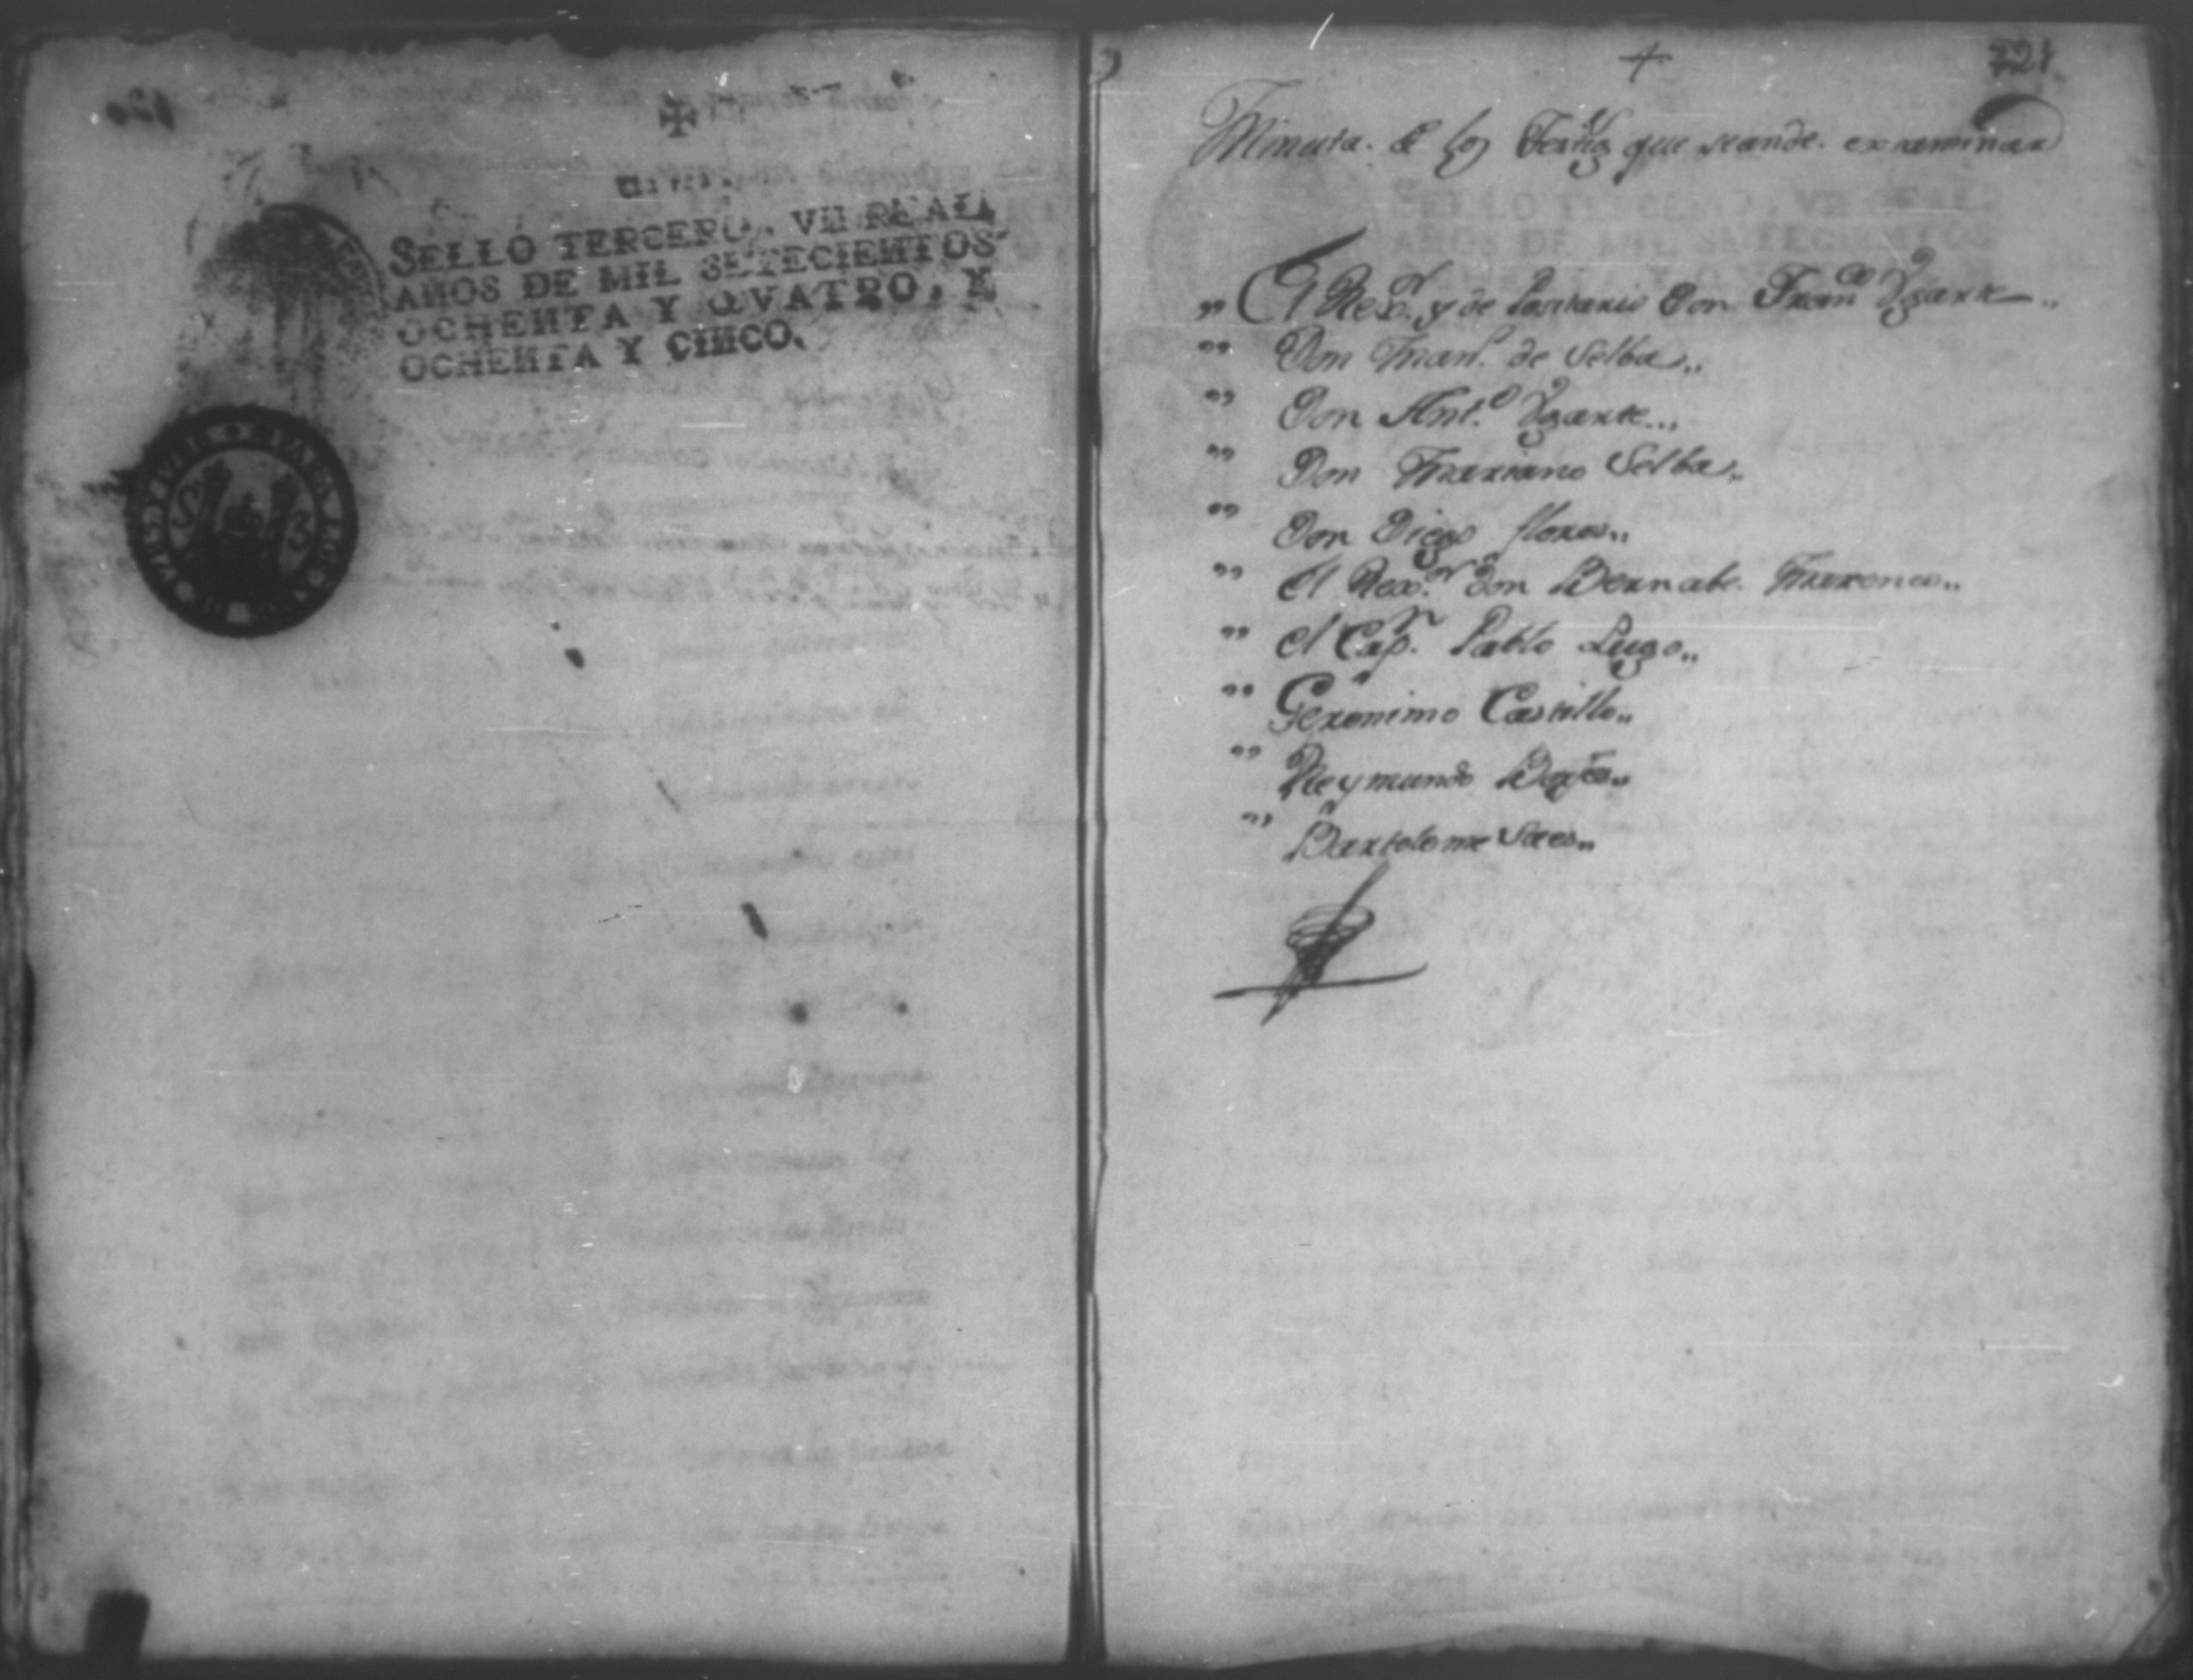 SELLO TERCERO, VN REAL
AÑOS DE MIL SETECIENTOS
OCHENTA Y QVATRO, Y
OCHENTA Y CINCO.
121
Minuta. de los Testigs que seande. exsaminar
" El Rexr. y de Positario Don Franco Ygarte"
" Don Man.l de Selba"
" Don Ant.o Ygarte"
" Don Mariano Selba"
" Don Diego flores"
" el Rexor Don Bernabe. Marenco"
" el Cap.n Pablo Lugo"
" Geronimo Castillo"
" Reymundo
" Bartolome Saes"